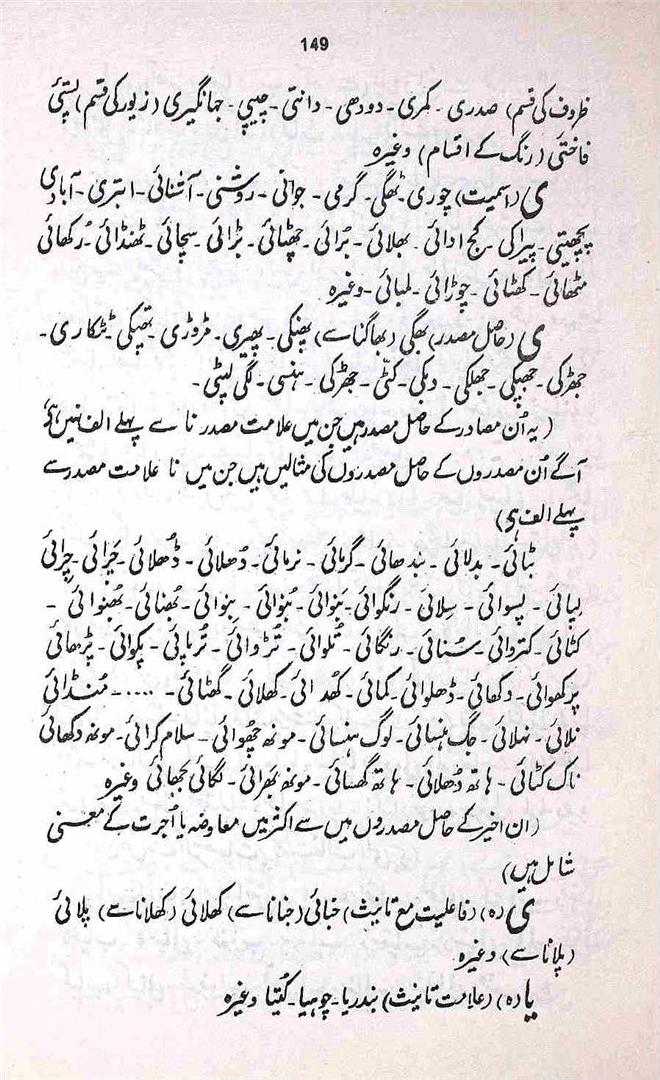 149
ظروف کی قسم) صدری - کمری - دودھی - دانتی - چیپی - جہانگیری (زیور کی قسم) پستئی
فاختئی (رنگ کے اقسام) وغیرہ
ی (اسمیت) چوری - ٹھگی - گرمی - جوانی - روشنی - آشنائی - ابتری - آبادی
پچھیتی - پیراکی - کج ادائی - بھلائی - بُرائی - چھٹائی - بڑائی - سچائی - ٹھنڈائی - رُکھائی
مٹھائی - کھٹائی - چوڑائی - لمبائی - وغیرہ
ی (حاصل مصدر) بھگی (بھاگنا سے) پھنکی - پھیری - مروڑی - تھپکی - ٹٹکاری -
جھڑکی - جھپکی - جھلکی - دبکی - کٹّی - جھڑکی - ہنسی - لگی لپٹی -
(یہ اُن مصادر کے حاصل مصدر ہیں جن میں علامت مصدر نا سے پہلے الف نہیں ہے
آگے اُن مصدروں کے حاصل مصدروں کی مثالیں ہیں جن میں نا علامت مصدر سے
پہلے الف ہی)
بٹائی - بدلائی - بندھائی - گرمائی - نرمائی - دُھلائی - ڈُھلائی - چَرائی - چِرائی
لپائی - پسوائی - سِلائی - رنگوائی - بَنوائی - بُنوائی - بِنوائی - بُھنائی - بُھنوائی -
کٹائی - کتروائی - سُنائی - رنگائی - تُلوائی - تُڑوائی - تُرپائی - پکوائی - پڑھائی
پرکھوائی - دکھائی - ڈھلوائی - کمائی - کُھدائی - کھلائی - گھٹائی - .... - مُنڈائی
نلائی - نہلائی - جگ ہنسائی - لوگ ہنسائی - مونھ چھوائی - سلام کرائی - مونھ دکھائی
ناک کٹائی - ہاتھ دُھلائی - ہاتھ گھسائی - مونھ بَھرائی - لگائی بجھائی وغیرہ
(ان اخیر کے حاصل مصدروں میں سے اکثر میں معاوضہ یا اُجرت کے معنی
شامل ہیں)
ی (ہ) (فاعلیت مع تانیث) جنائی (جنانا سے) کھلائی (کھلانا سے) پلائی
(پلانا سے) وغیرہ
یا (ہ) (علامت تانیث) بندریا - چوہیا - کُتیا وغیرہ